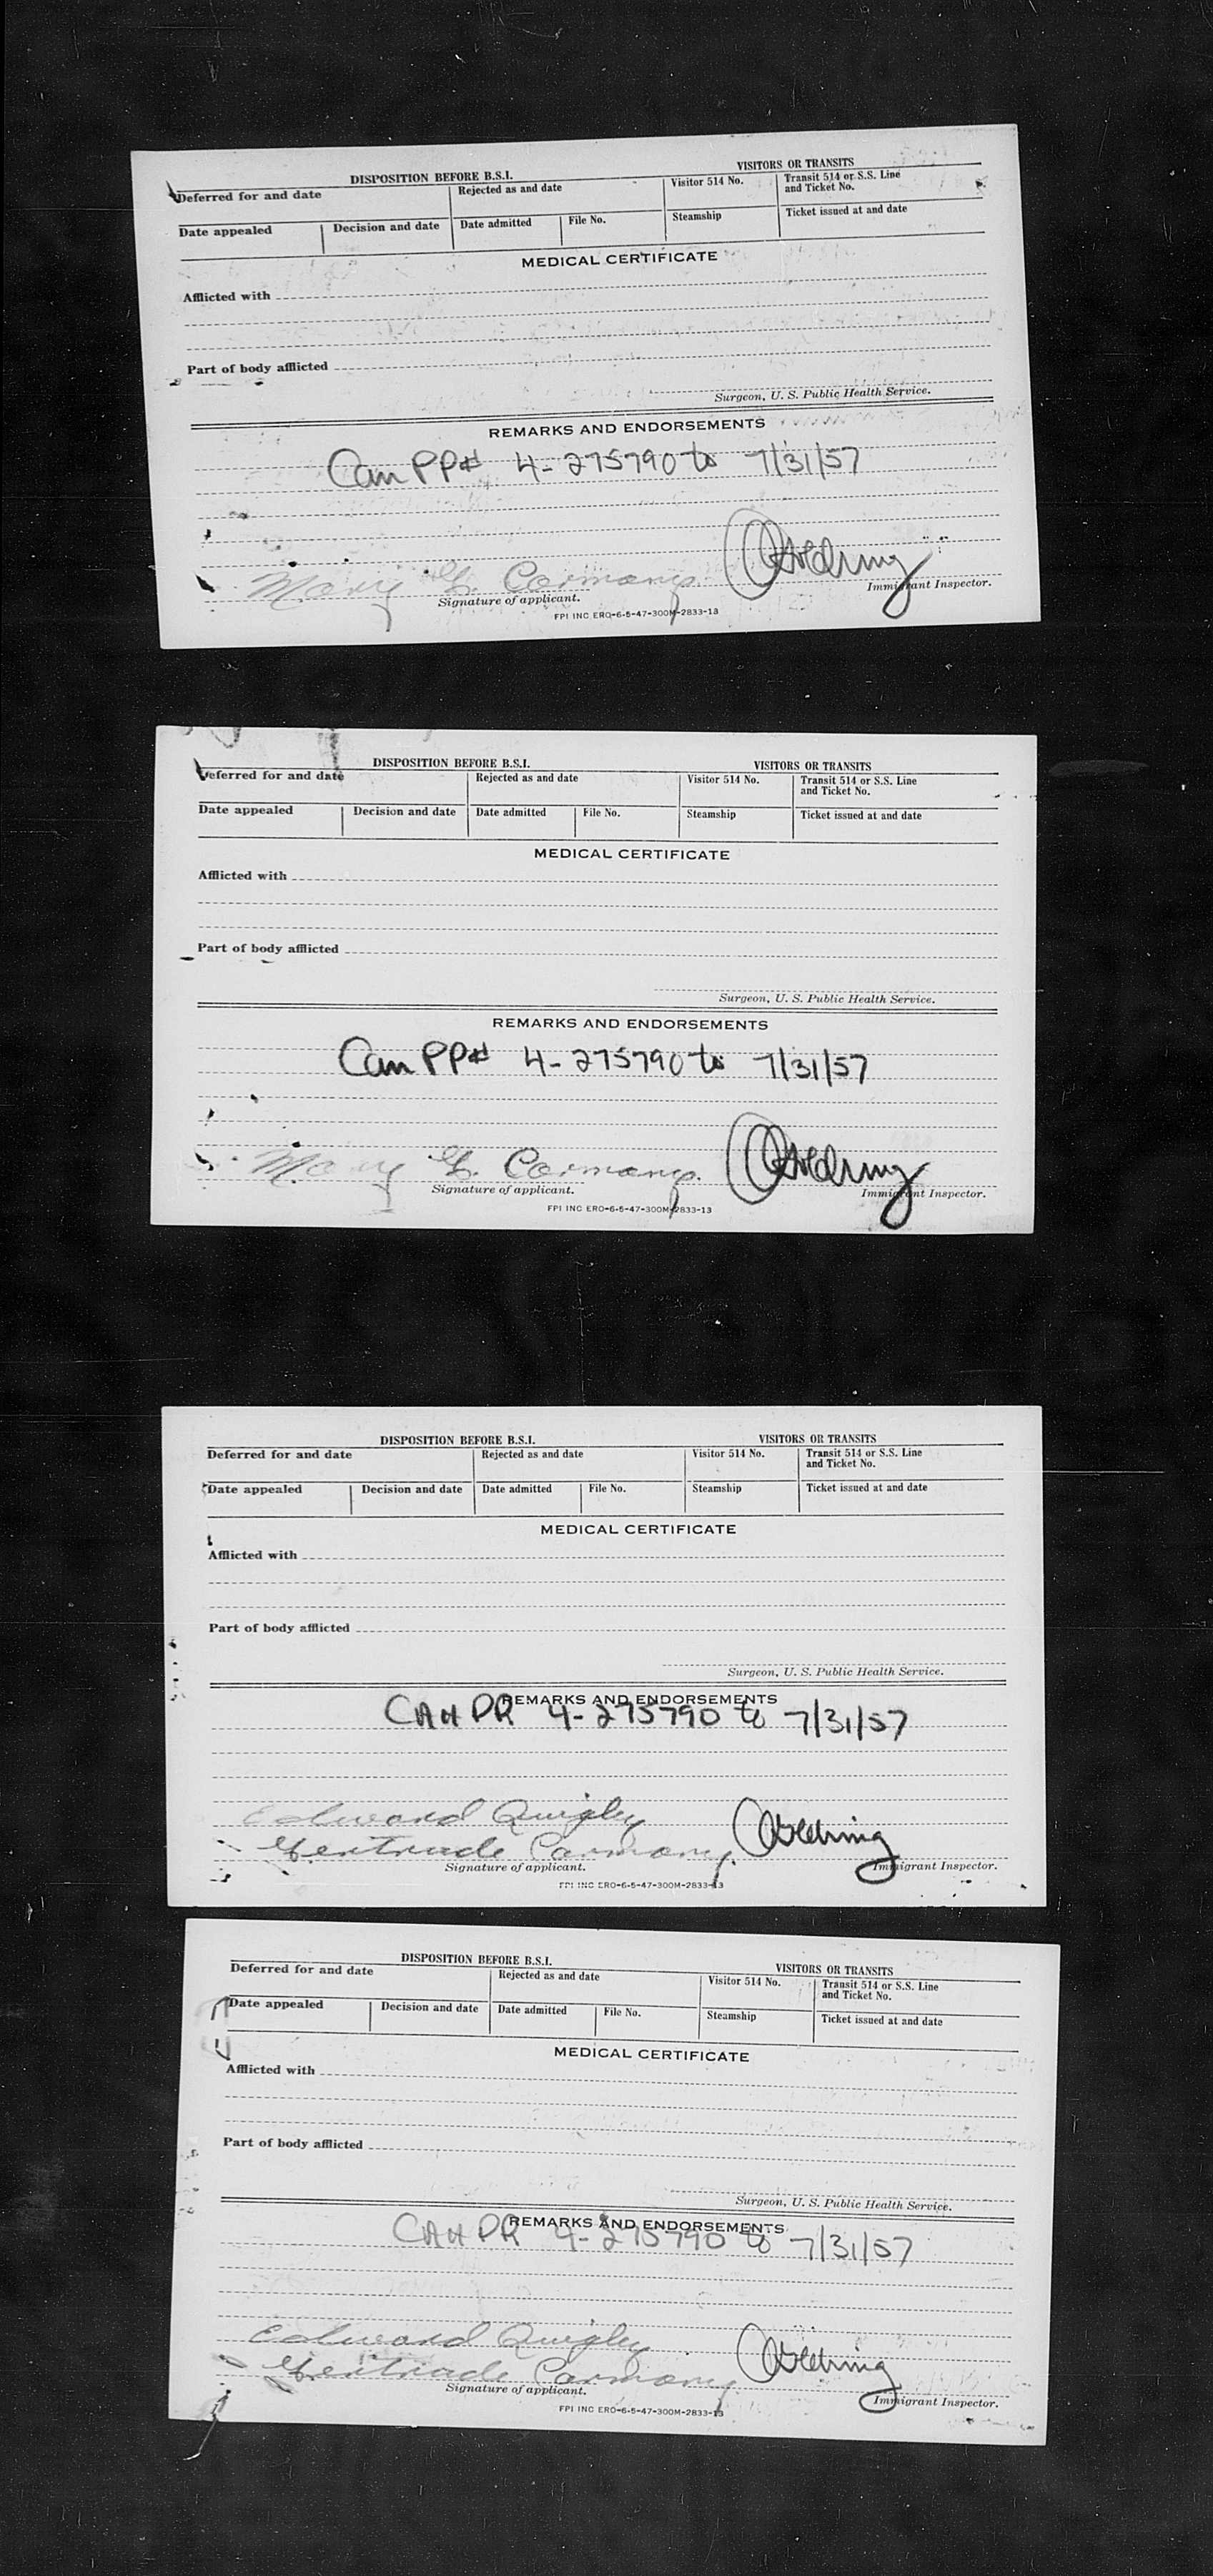 DISPOSITION BEFORE B.S.I. VISITORS OR TRANSITS
Deferred for and date Rejected as and date Visitor 514 No. Transit 514 or S.S. Line and Ticket No.
Date appealed Decision and date Date admitted File No. Steamship Ticket issued at and date
MEDICAL CERTIFICATE
Afflicted with
Part of body afflicted
Surgeon, U. S. Public Health Service.
REMARKS AND ENDORSEMENTS
Can PP# 4-275790 to 7/31/57
Mary G. Carmany
Signature of applicant. Immigrant Inspector.
FPI INC ERO-6-5-47-300M-2833-13
DISPOSITION BEFORE B.S.I. VISITORS OR TRANSITS
Deferred for and date Rejected as and date Visitor 514 No. Transit 514 or S.S. Line and Ticket No.
Date appealed Decision and date Date admitted File No. Steamship Ticket issued at and date
MEDICAL CERTIFICATE
Afflicted with
Part of body afflicted
Surgeon, U. S. Public Health Service.
REMARKS AND ENDORSEMENTS
Can PP# 4-275790 to 7/31/57
Mary G. Carmany
Signature of applicant. Immigrant Inspector.
FPI INC ERO-6-5-47-300M-2833-13
DISPOSITION BEFORE B.S.I. VISITORS OR TRANSITS
Deferred for and date Rejected as and date Visitor 514 No. Transit 514 or S.S. Line and Ticket No.
Date appealed Decision and date Date admitted File No. Steamship Ticket issued at and date
MEDICAL CERTIFICATE
Afflicted with
Part of body afflicted
Surgeon, U. S. Public Health Service.
REMARKS AND ENDORSEMENTS
4-275790 to 7/31/57
Edward Quigley
Gertrude Carmany
Signature of applicant. Immigrant Inspector.
FPI INC ERO-6-5-47-300M-2833-13
DISPOSITION BEFORE B.S.I. VISITORS OR TRANSITS
Deferred for and date Rejected as and date Visitor 514 No. Transit 514 or S.S. Line and Ticket No.
Date appealed Decision and date Date admitted File No. Steamship Ticket issued at and date
MEDICAL CERTIFICATE
Afflicted with
Part of body afflicted
Surgeon, U. S. Public Health Service.
REMARKS AND ENDORSEMENTS
4-275790 to 7/31/57
Edward Quigley
Gertrude Carmany
Signature of applicant. Immigrant Inspector.
FPI INC ERO-6-5-47-300M-2833-13